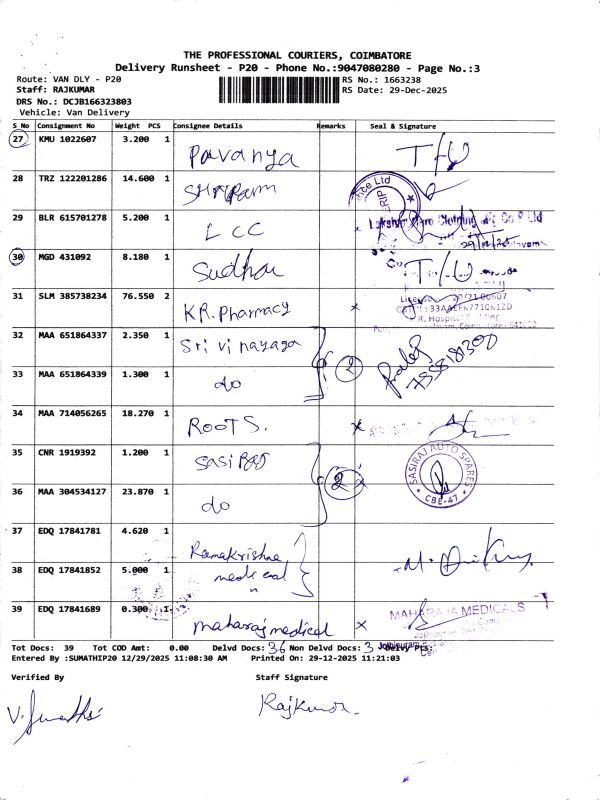 THE PROFESSIONAL COURIERS, COIMBATORE
Delivery Runsheet - P20 - Phone No.:9047080280 - Page No.:3
Route: VAN DLY - P20
RS No.: 1663238
Staff: RAJKUMAR
RS Date: 29-Dec-2025
DRS No.: DCJB166323803
Vehicle: Van Delivery
S No Consignment No Weight PCS Consignee Details Remarks Seal & Signature
27 KMU 1022607 3.200 1 Pavanya
28 TRZ 122201286 14.600 1
29 BLR 615701278 5.200 1 LCC
30 MGD 431092 8.180 1 Sudhar
31 SLM 385738234 76.550 2 KR. Pharmacy x
32 MAA 651864337 2.350 1 Sri Vinayaga
33 MAA 651864339 1.300 1 do 2
34 MAA 714056265 18.270 1 ROOTS. x
35 CNR 1919392 1.200 1 SASIRAJ AUTO SPARES
CBE-47
36 MAA 304534127 23.870 1 do 2
37 EDQ 17841781 4.620 1 Ramakrishna
38 EDQ 17841852 5.000 1 medical
39 EDQ 17841689 0.300 1 maharaj medical x MAHARAJA MEDICALS
Tot Docs: 39 Tot COD Amt: 0.00 Delvd Docs: 36 Non Delvd Docs: 3 Delvy Pts:
Entered By :SUMATHIP20 12/29/2025 11:08:30 AM Printed On: 29-12-2025 11:21:03
Verified By Staff Signature
V. Sumathi Rajkumar.